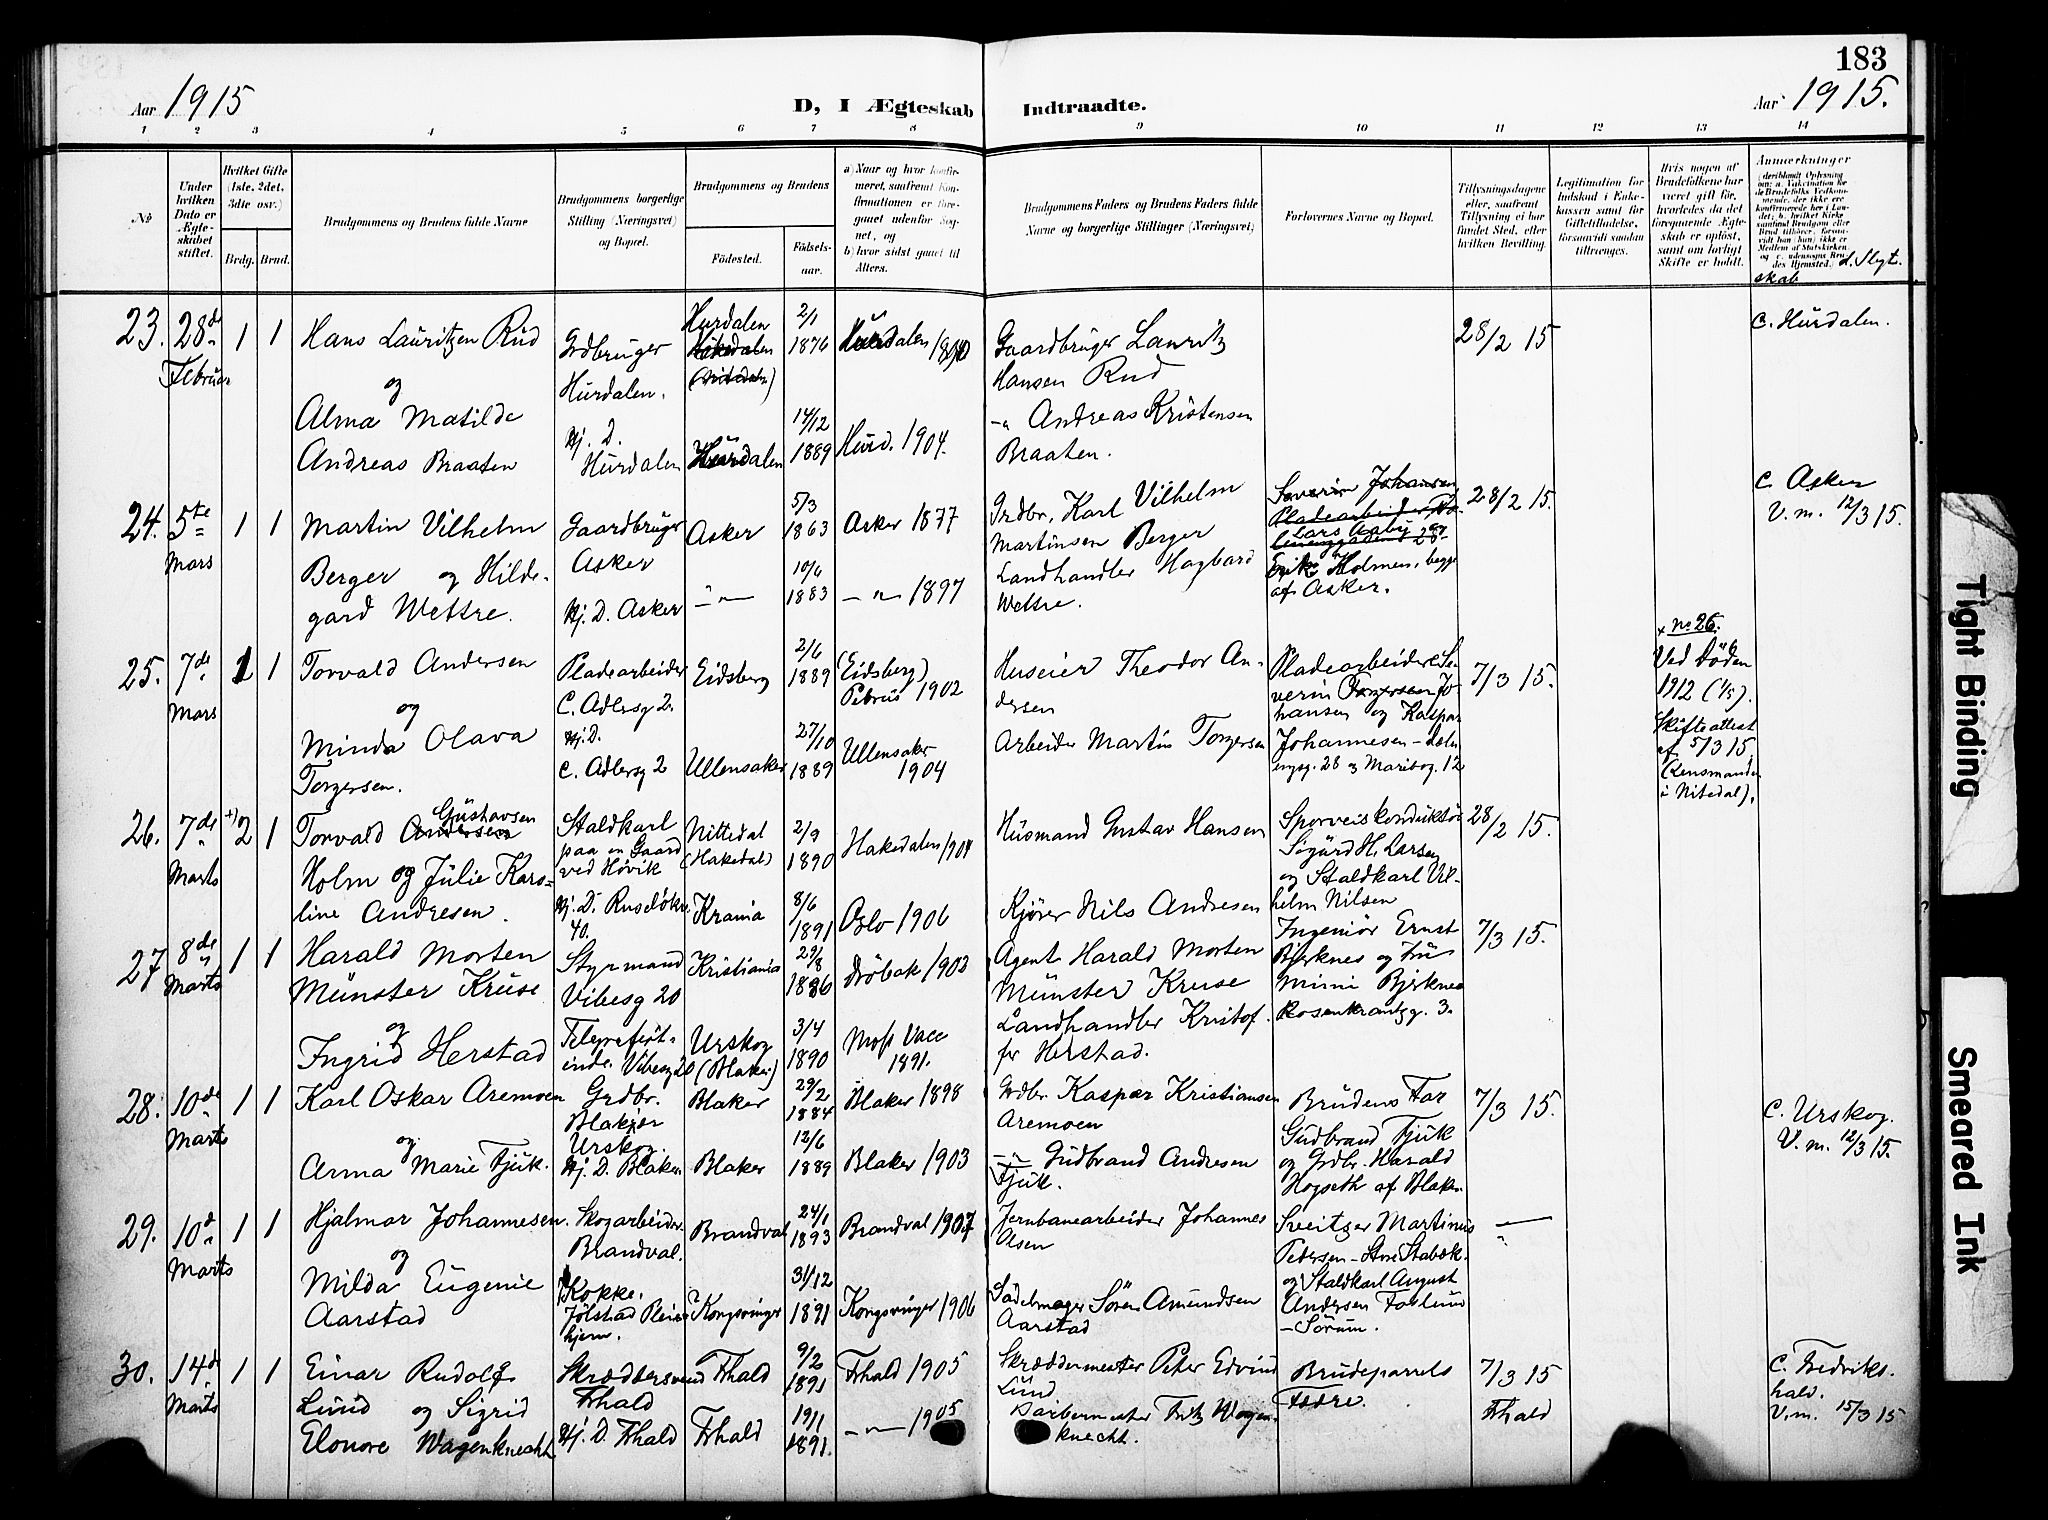 183
Aar 1915
D, I Ægteskab Indtraadte.
Aar 1915.
1 2 3 4 5 6 7 8 9 10 11 12 13 14
No
Under hvilken Dato er Ægteskabet stiftet.
Hvilket Gifte (1ste, 2det, 3die osv.)
Brdg. Brud.
Brudgommens og Brudens fulde Navne
Brudgommens borgerlige Stilling (Næringsvei) og Bopæl.
Brudgommens og Brudens
Födested.
Födselsaar.
a) Naar og hvor konfirmeret, saafremt Konfirmationen er foregaaet udenfor Sognet, og
b) hvor sidst gaaet til Alters.
Brudgommens Faders og Brudens Faders fulde Navne og borgerlige Stillinger (Næringsvei)
Forlovernes Navne og Bopæl.
Tillysningsdagene eller, saafremt Tillysning ei har fundet Sted, efter hvilken Bevilling.
Legitimation for Indskud i Enkekassen samt for Giftetilladelse, forsaavidt saadan tiltrænges.
Hvis nogen af Brudefolkene har været gift før, hvorledes da det foregaaende Ægteskab er opløst, samt om lovligt Skifte er holdt.
Anmærkninger
d. Slegtskab
23. 28de Februar 1 1
Hans Lauritzen Rud
og
Alma Matilde
Andreas Braaten
Grdbruger
Hurdalen.
Hj. D.
Hurdalen
Hurdalen
2/1 1876
Hurdalen
14/12 1889
Hurd. 1904.
Gaardbruger Lauritz
Hansen Rud
-"- Andreas Kristensen
Braaten.
28/2 15
C. Hurdalen.
24. 5te Mars 1 1
Martin Vilhelm
Berger og Hilde-
gard Wettre.
Gaardbruger
Asker
Hj. D. Asker
Asker
-"-
5/3 1863
10/6 1883
Asker 1877
-"- 1897
Grdbr. Karl Vilhelm
Martinsen Berger
Landhandler Hagbard
Wettre.
Severin Johansen
Lars Aaby
Erik Holmen, begge
af Asker.
28/2 15.
C. Asker
V. m. 12/3 15.
25. 7de Mars 1 1
Torvald Andersen
og
Minda Olava
Torgersen.
Pladearbeider
C. Adlersg 2.
Hj. D.
C. Adlersg 2
Eidsberg
Ullensaker
2/6 1889
27/10 1889
(Eidsberg)
Petrus 1902
Ullensaker
1904
Huseier Theodor An-
dersen
Arbeider Martin Torgersen
Pladearbeider Se-
verin Torgersen Jo-
hansen og Kaspar
Johannesen - Lelm
engsg. 28 og Maribog. 12
7/3 15.
x no 26.
Ved Døden
1912 (1/5).
Skifteattest
af 5/3 15.
(Lensmanden
i Nitedal).
26. 7de Marts +) 2 1
Torvald Andersen Gustavsen
Holm og Julie Karo-
line Andresen.
Staldkarl
paa en Gaard
ved Høvik
Hj. D. Ruseløkv.
40.
Nittedal
(Hakedal)
Krania
2/9 1890
8/6 1891
Hakedalen 1904
Oslo 1906
Husmand Gustav Hansen
Kjører Nils Andresen
Sporveiskonduktør
Sigurd H. Larsen
og Staldkarl Vil-
helm Nilsen
28/2 15.
27 8de Marts 1 1
Harald Morten
Münster Kruse
og
Ingrid Herstad
Styrmand
Vibesg 20
Telegrafist-
inde. Vibesg 20
Kristiania
Urskog
(Blaker)
29/8 1886
3/4 1890
Drøbak 1902
Moss
1891.
Agent Harald Morten
Münster Kruse
Landhandler Kristof-
fer Herstad.
Ingeniør Ernst
Bjerknes og Fru
Mimi Bjerknes
Rosenkrantzg. 3.
7/3 15.
28. 10de Marts 1 1
Karl Oskar Aremoen
og
Anna Marie Tjuk.
Grdbr.
Blakjer
Urskog.
Hj. D. Blaker
Blaker
Blaker
29/2 1884
12/6 1889
Blaker 1898
Blaker 1903
Grdbr. Kaspar Kristiansen
Aremoen
-"- Gudbrand Andresen
Tjuk.
Brudens Far
Gudbrand Tjuk
og Grdbr. Harald
Hogseth af Blaker.
7/3 15.
C. Urskog.
V. m. 12/3 15.
29. 10de Marts 1 1
Hjalmar Johannesen.
og
Milda Eugenie
Aarstad
Skogarbeider.
Brandval.
Kokke.
Jølstad Pleie-
hjem.
Brandval
Kongsvinger
24/1 1893
31/12 1891
Brandval 1907
Kongsvinger 1906
Jernbanearbeider Johannes
Olsen
Sadelmager Søren Amundsen
Aarstad
Sveitser Martinus
Pedersen - Store Stabæk.
og Staldkarl August
Andersen
- Sørum.
-"-
30. 14de Marts 1 1
Einar Rudolf
Lund og Sigrid
Elonore Wagenknecht
Skræddersvend
Frhald
Hj. D. Frhald
Frhald
Frhald
9/2 1891
19/1 1891.
Frhald 1905
-"- 1905
Skræddermester Peter Edvind
Lund
Farbermester Fritz Wagen
knecht.
Brudeparrets
Fædre.
7/3 15
Frhald
C. Fredriks-
hald.
V. m. 15/3 15
Tight Binding
Smeared Ink